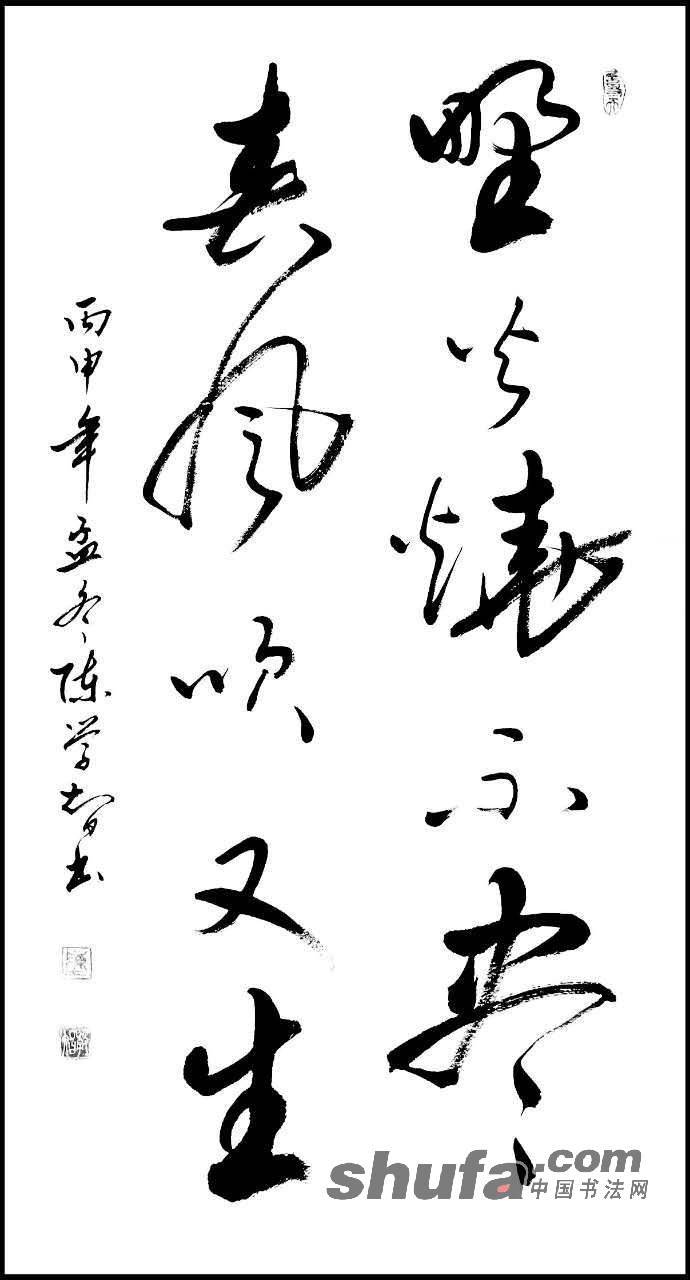 野火烧不尽
春风吹又生
丙申年孟冬陈学智书
shufa.com
中国书法网